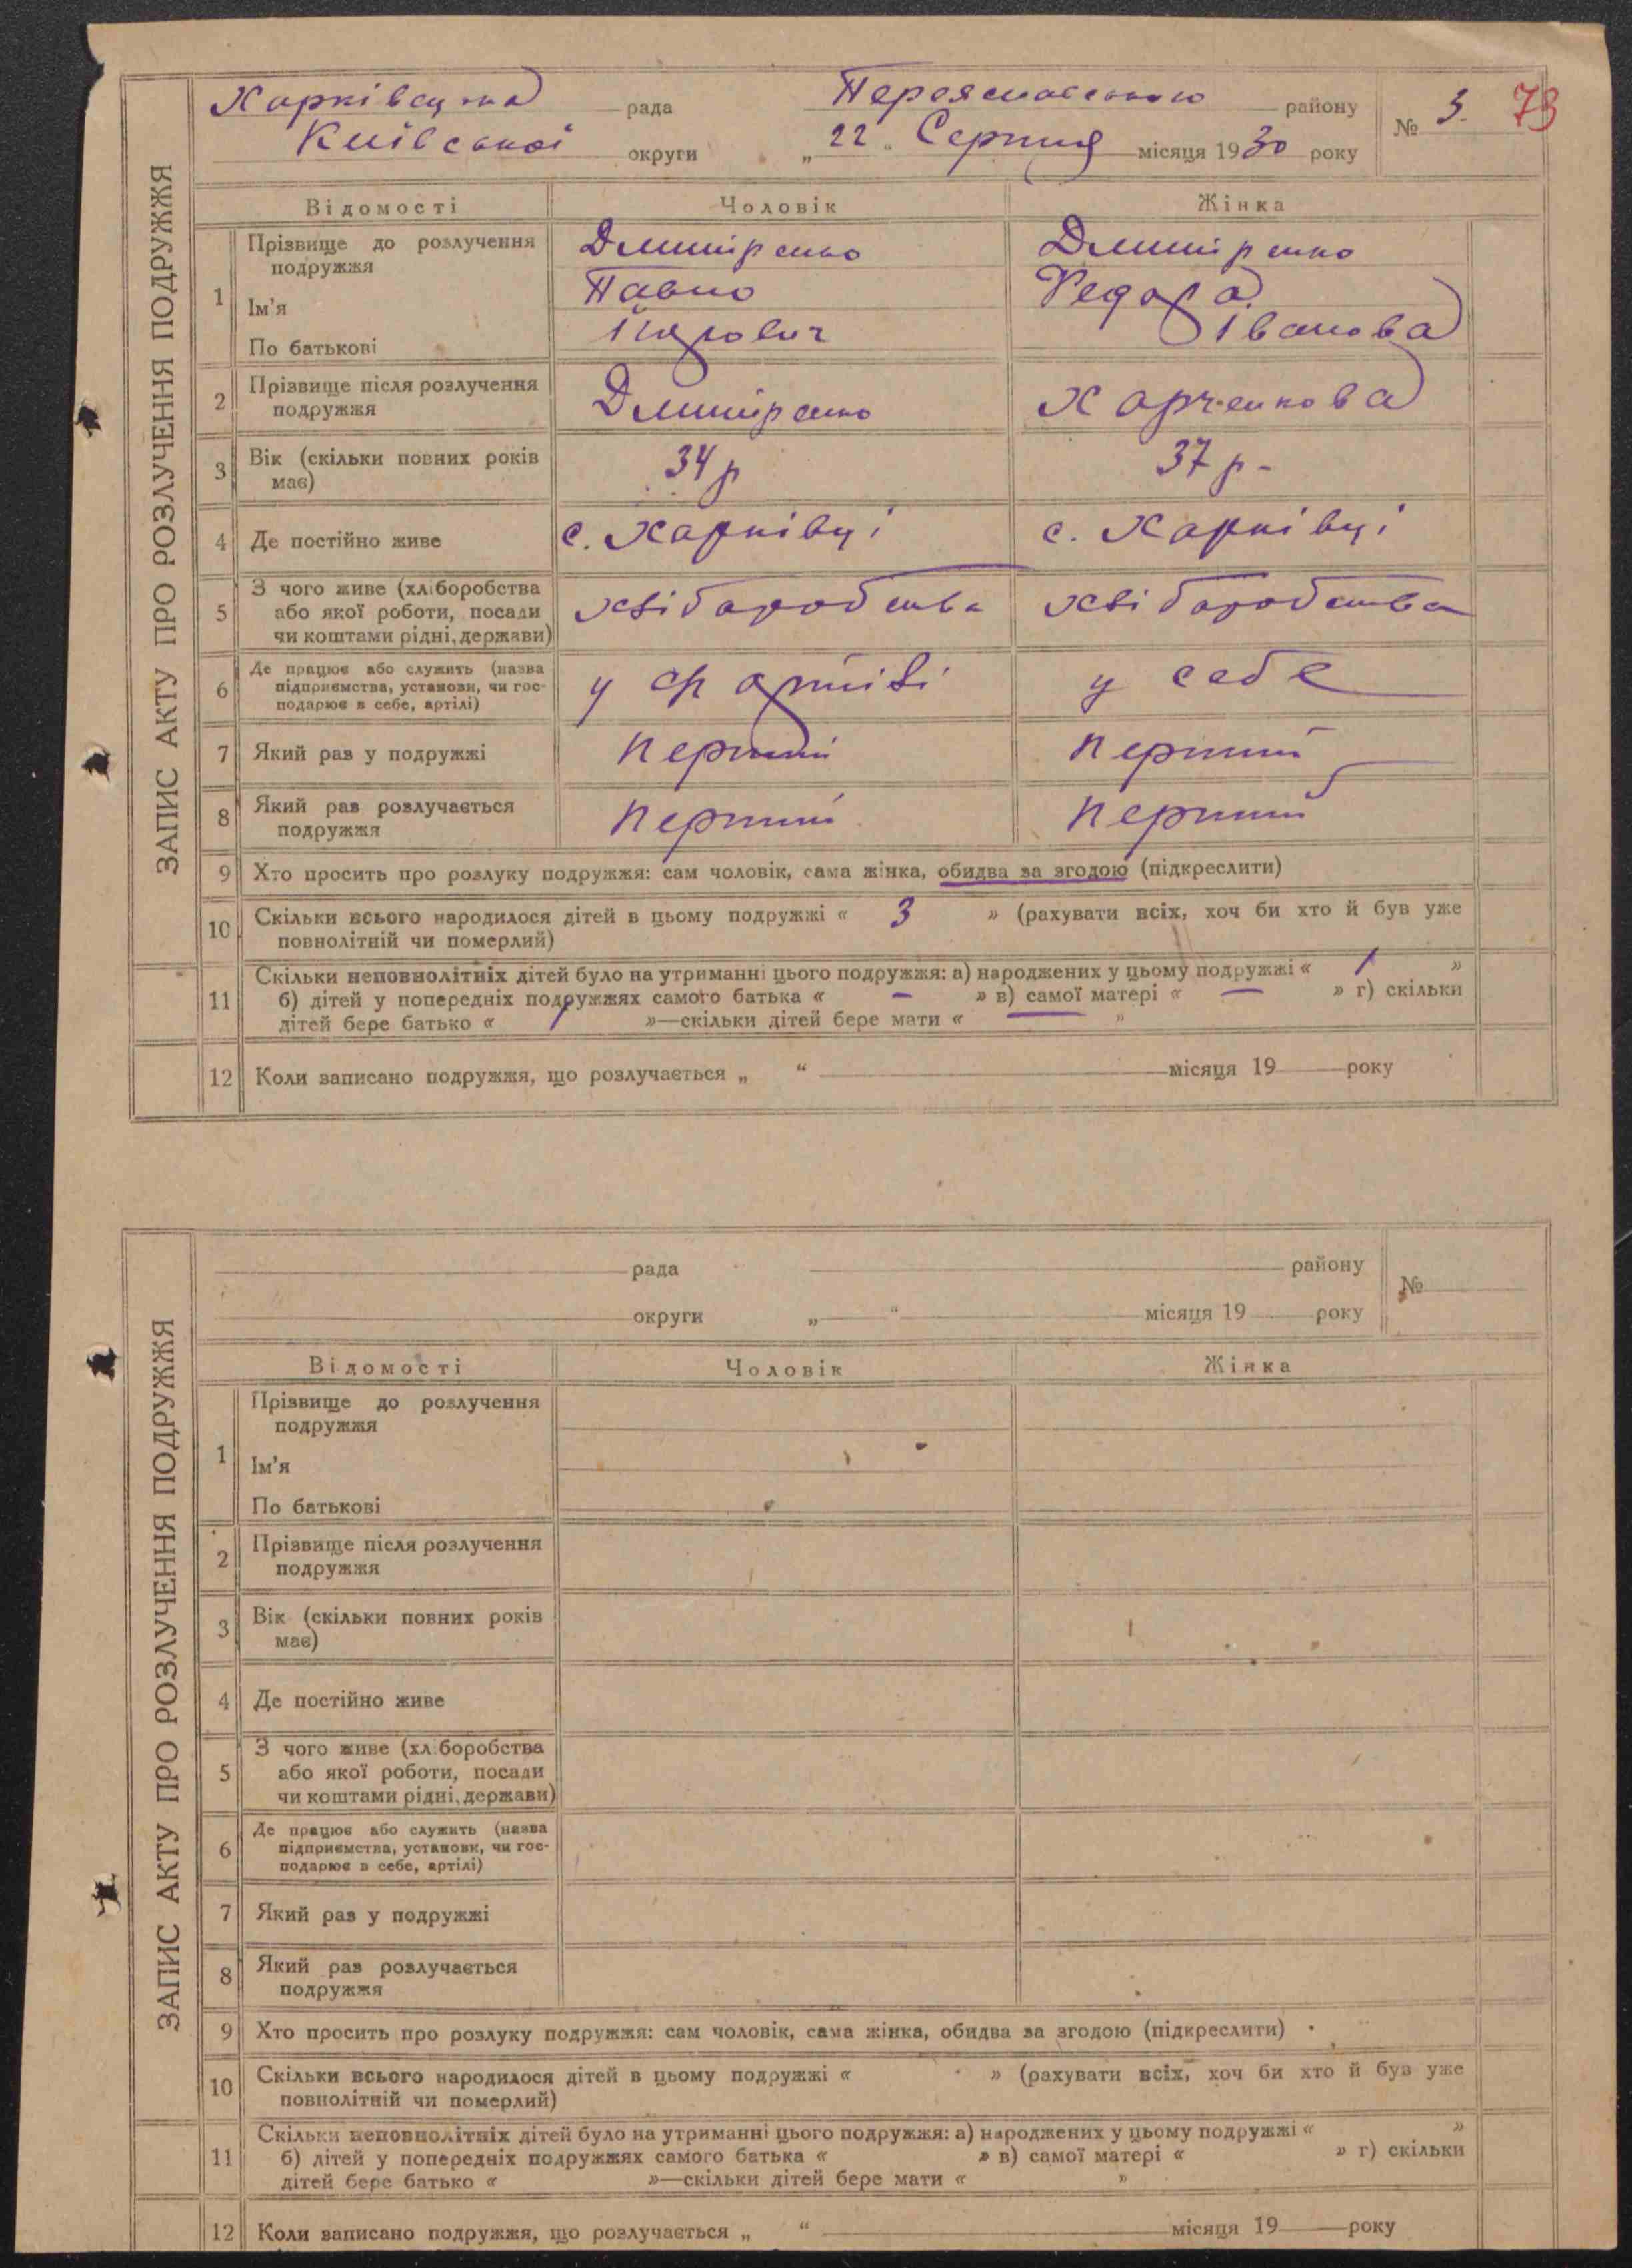 ЗАПИС АКТУ ПРО РОЗЛУЧЕННЯ ПОДРУЖЖЯ
Харківцська рада Переяславського району № 3. 73
Київської округи „ 22 “ Серпня місяця 1930 року
Відомості Чоловік Жінка
1 Прізвище до розлучення подружжя Дмитренко Дмитренко
Ім'я Павло Федора
По батькові Іванова
2 Прізвище після розлучення подружжя Дмитренко Харченкова
3 Вік (скільки повних років має) 34 р 37 р -
4 Де постійно живе с. Харківці с. Харківці
5 З чого живе (хліборобства або якої роботи, посади чи коштами рідні, держави) хліборобства хліборобства
6 Де працює або служить (назва підприємства, установи, чи господарює в себе, артілі) у артілі у себе
7 Який раз у подружжі перший перший
8 Який раз розлучається подружжя перший перший
9 Хто просить про розлуку подружжя: сам чоловік, сама жінка, обидва за згодою (підкреслити)
10 Скільки всього народилося дітей в цьому подружжі « 3 » (рахувати всіх, хоч би хто й був уже
повнолітній чи померлий)
11 Скільки неповнолітніх дітей було на утриманні цього подружжя: а) народжених у цьому подружжі « 1 »
б) дітей у попередніх подружжях самого батька « – » в) самої матері « — » г) скільки
дітей бере батько « 1 »—скільки дітей бере мати « — »
12 Коли записано подружжя, що розлучається „ “ місяця 19 року
ЗАПИС АКТУ ПРО РОЗЛУЧЕННЯ ПОДРУЖЖЯ
рада району №
округи „ “ місяця 19 року
Відомості Чоловік Жінка
1 Прізвище до розлучення
подружжя
Ім'я
По батькові
2 Прізвище після розлучення
подружжя
3 Вік (скільки повних років
має)
4 Де постійно живе
5 З чого живе (хліборобства
або якої роботи, посади
чи коштами рідні, держави)
6 Де працює або служить (назва
підприємства, установи, чи гос-
подарює в себе, артілі)
7 Який раз у подружжі
8 Який раз розлучається
подружжя
9 Хто просить про розлуку подружжя: сам чоловік, сама жінка, обидва за згодою (підкреслити)
10 Скільки всього народилося дітей в цьому подружжі « » (рахувати всіх, хоч би хто й був уже
повнолітній чи померлий)
11 Скільки неповнолітніх дітей було на утриманні цього подружжя: а) народжених у цьому подружжі « »
б) дітей у попередніх подружжях самого батька « » в) самої матері « » г) скільки
дітей бере батько « »—скільки дітей бере мати « »
12 Коли записано подружжя, що розлучається „ “ місяця 19 року